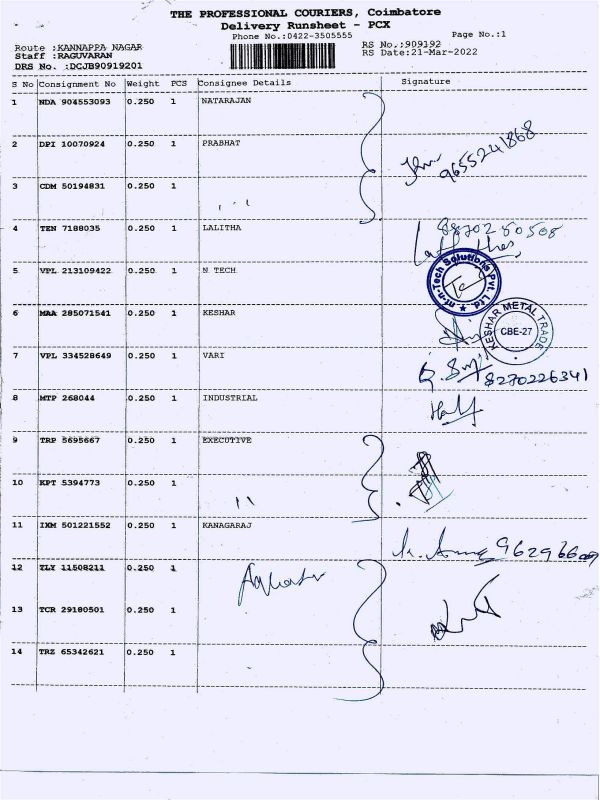 THE PROFESSIONAL COURIERS, Coimbatore
Delivery Runsheet - PCX
Phone No.:0422-3505555
Page No.:1
Route :KANNAPPA NAGAR
RS No.:909192
Staff :RAGUVARAN
RS Date:21-Mar-2022
DRS No. :DCJB90919201
S No Consignment No Weight PCS Consignee Details Signature
1 NDA 904553093 0.250 1 NATARAJAN
2 DPI 10070924 0.250 1 PRABHAT
9655241868
3 CDM 50194831 0.250 1
4 TEN 7188035 0.250 1 LALITHA
8870280508
5 VPL 213109422 0.250 1 N TECH
n-Tech Solutions Pvt. Ltd.
6 MAA 285071541 0.250 1 KESHAR
KESHAR METAL TRADE
CBE-27
7 VPL 334528649 0.250 1 VARI
8270226341
8 MTP 268044 0.250 1 INDUSTRIAL
9 TRP 5695667 0.250 1 EXECUTIVE
10 KPT 5394773 0.250 1
11 IXM 501221552 0.250 1 KANAGARAJ
12 TLY 11508211 0.250 1
13 TCR 29180501 0.250 1
14 TRZ 65342621 0.250 1